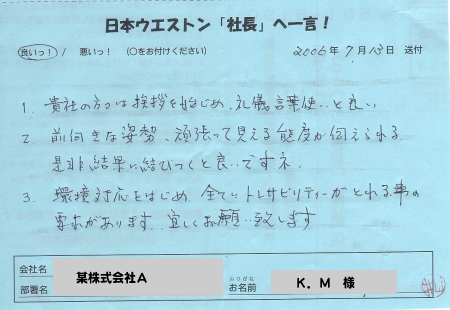 日本ウエストン「社長」へ一言！
良いっ！ / 悪いっ！ （○をお付けください） 2006年 7月 13日 送付
1. 貴社の方々は挨拶を始め、礼儀言葉使いと良い
2. 前向きな姿勢、頑張って見える態度が伺えられる
是非結果に結びつくと良いですネ
3. 環境対応をはじめ、全てトレサビリティーがとれる事の
要求があります。宜しくお願い致します
会社名 某株式会社A
ふりがな
部署名 お名前 K．M 様